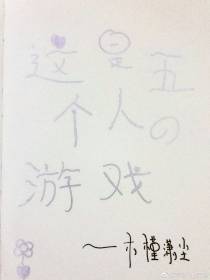 这是五
个人の
游戏
—木槿